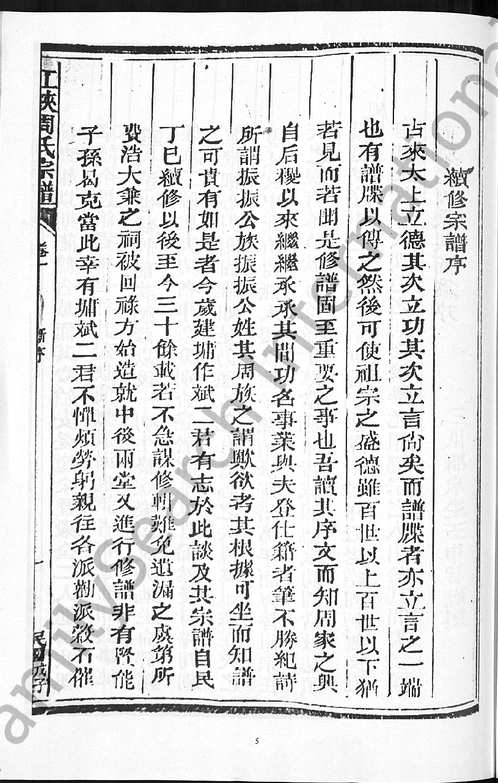 續修宗譜序
古來太上立德其次立功其次立言尙矣而譜牒者亦立言之一端
也有譜牒以傳之然後可使祖宗之盛德雖百世以上百世以下猶
若見而若聞是修譜固至重要之事也吾讀其序文而知周家之興
自后稷以來繼繼承承其間功名事業與夫登仕籍者筆不勝紀詩
所謂振振公族振振公姓其周族之謂歟欲考其根據可坐而知譜
之可貴有如是者今歲建墉作斌二君有志於此談及其宗譜自民
丁巳續修以後至今三十餘載若不急謀修輯難免遺漏之虞第所
費浩大兼之祠被回祿方始造就中後兩堂又進行修譜非有賢能
子孫曷克當此幸有墉斌二君不憚煩勞躬親往各派勸派穀石催
江陝周氏宗譜
卷一
新序
一
民國戊子
5
FamilySearch International